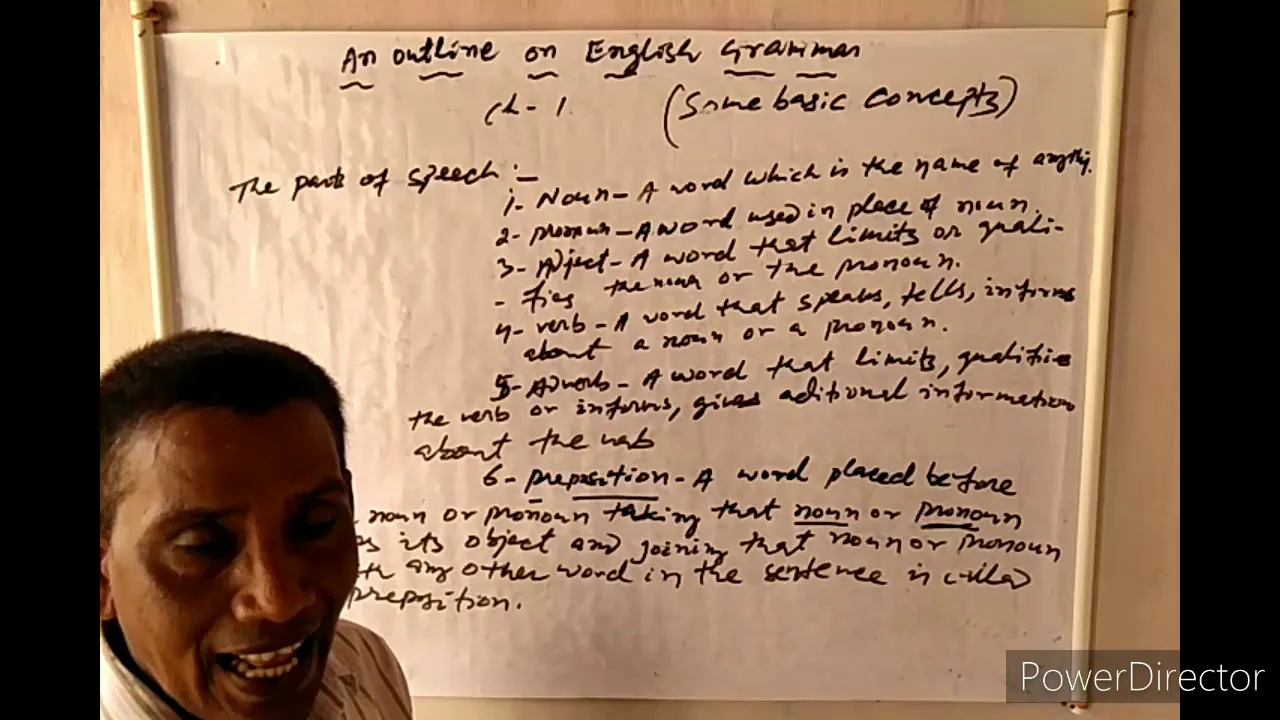 An outline on English Grammar
Ch - 1. (Some basic concepts)
The parts of speech :-
1- Noun - A word which is the name of anything.
2- pronoun - A word used in place of noun.
3- Adject - A word that limits or quali-
- fies the noun or the pronoun.
4- verb - A word that speaks, tells, informs
about a noun or a pronoun.
5- Adverb - A word that limits, qualifies
the verb or informs, gives aditional information
about the verb
6- preposition - A word placed before
noun or pronoun taking that noun or pronoun
as its object and joining that noun or pronoun
any other word in the sentence is called
preposition.
PowerDirector